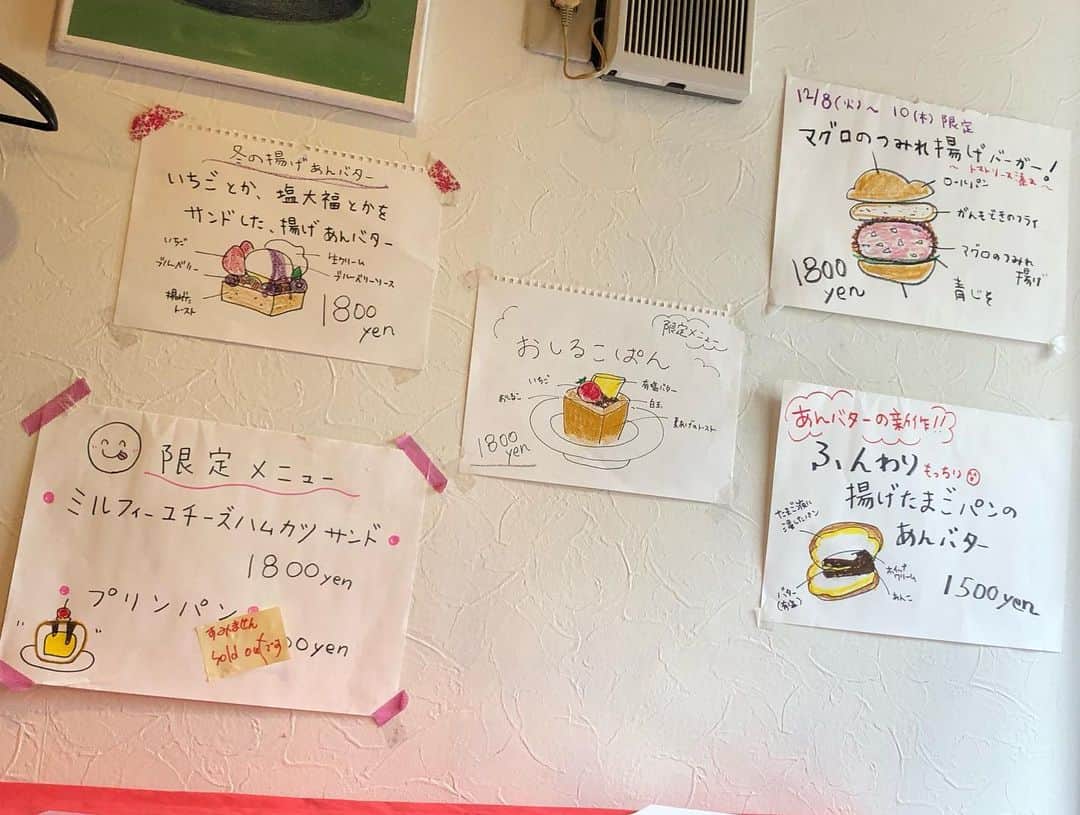 冬の揚げあんバター
いちごとか、塩大福とかを
サンドした、揚げあんバター
いちご
ブルーベリー
揚げた
トースト
生クリーム
ブルーベリーソース
1800
yen
限定メニュー
おしるこぱん
いちご
おしるこ
有塩バター
白玉
素あげのトースト
1800
yen
12/8(火)〜10(木)限定
マグロのつみれ揚げバーガー!
ロールパン
がんもどきのフライ
マグロのつみれ
揚げ
青じそ
1800
yen
限定メニュー
ミルフィーユチーズハムカツサンド
1800yen
プリンパン
すみません
Sold outです
00yen
あんバターの新作!!
ふんわりもっちり
揚げたまごパンの
あんバター
たまご液に
浸したパン
ホイップ
クリーム
バター
(有塩)
あんこ
1500yen